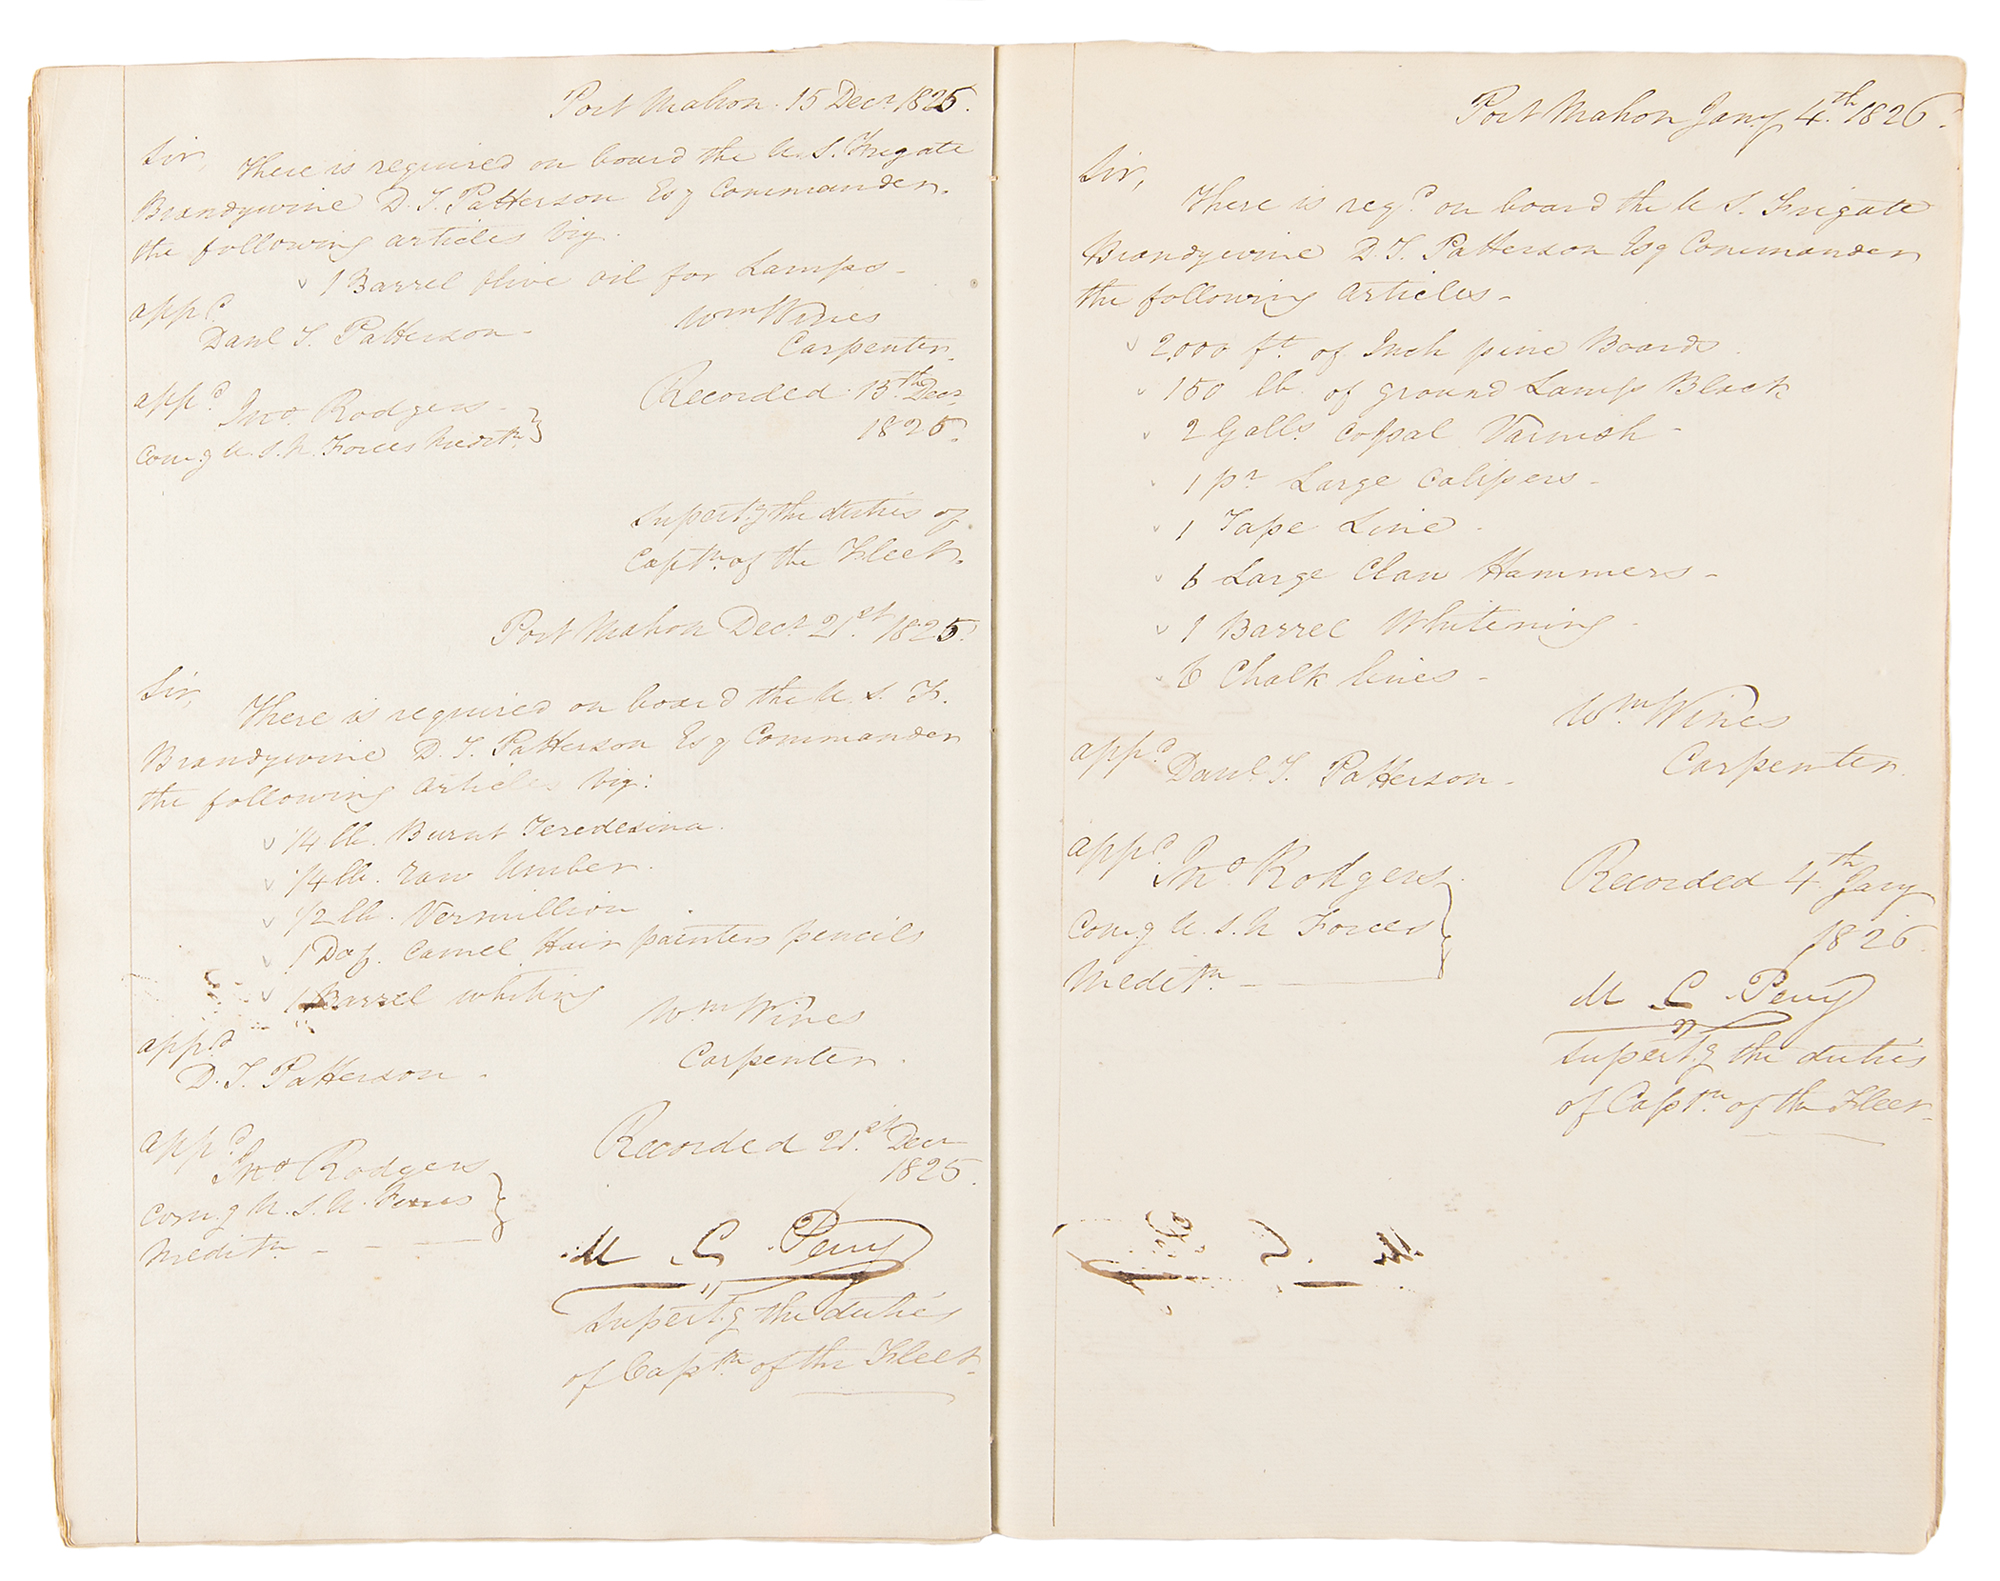 Port Mahon. 15 Decr 1825.
Sir, There is required on board the U. S. Frigate
Brandywine D. T. Patterson Esq Commander.
the following articles Viz.
v 1 Barrel Olive oil for Lamps -
appd.
Danl T. Patterson -
Wm Wines
Carpenter.
appd. Jno. Rodgers -
Com.g U. S. N. Forces Meditn. }
Recorded 15th Decr
1825.
Supert.g the duties of
Captn. of the Fleet.
Port Mahon Decr 21st. 1825.
Sir,
There is required on board the U. S. F.
Brandywine D. T. Patterson Esq Commander
the following articles Viz:
v 1/4 lb. Burnt Teredesina.
v 1/4 lb. raw Umber.
v 1/2 lb. Vermillion
v 1 Doz. Camel Hair painters pencils
v 1 Barrel whiting
Wm Wines
Carpenter.
appd
D. T. Patterson -
appd.
Jno Rodgers
Com.g U. S. N. Forces }
Meditn. - - -
Recorded 21st. Decr
1825.
M C Perry
Supert.g the duties
of Captn. of the Fleet.
Port Mahon Jany 4th. 1826.
Sir,
There is reqd. on board the U S. Frigate
Brandywine D. T. Patterson Esq Commander
the following articles -
v 2,000 ft. of Inch pine Boards
v 150 lb. of ground Lamp Black
v 2 Galls. Copal Varnish -
v 1 pr Large Calipers -
v 1 Tape Line -
v 6 Large Claw Hammers -
v 1 Barrel Whitening -
v 6 Chalk lines -
Wm Wines
Carpenter.
appd.
Danl. T. Patterson -
appd.
Jno Rodgers
Com.g U. S. N Forces }
Meditn. -
Recorded 4th Jany
1826.
M C Perry
Supert.g the duties
of Captn. of the Fleet.